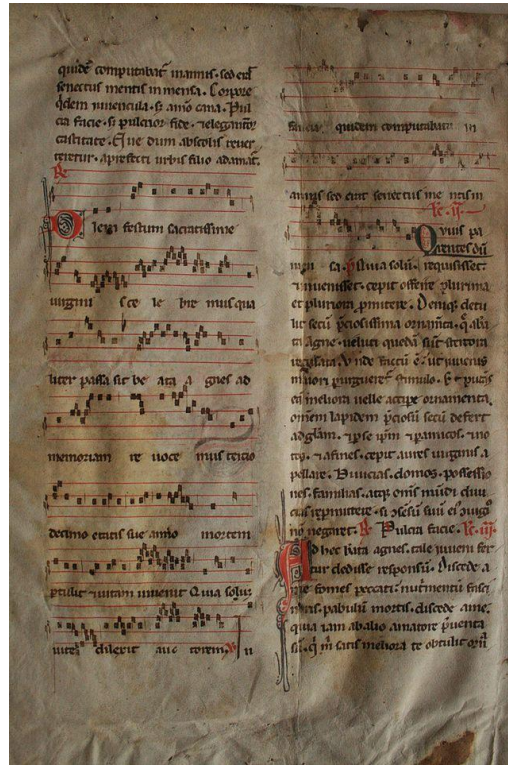 quidē computabat᷑ in annis. sed erat
senectus mentis inmensa. Corpore
q̇dem iuuencula. s; animo cana. Pul
cra facie. s; pulcrior fide. ⁊ elegantior
castitate. Que dum ascolis reuer
teretur. a prefecti urbis filio adamat᷑.
R̃
Diem festum sacratissime
uirgini s ce le bre mus qua
liter passa sit be ata a gnes ad
memoriam re uoce mus tercio
decimo etatis sue anno mortem
p̱didit ⁊ uitam inuenit Quia solum
uite dilexit auc torem. V̷ In
fancia quidem computabatur in
annis sed erat senectus me ntis in
mēn sa.
lc̄. ij.
Quius pa
rentes dū
requisisset
⁊ inuenisset. cepit offerre plurima
et pluriora p̱mittere. Deniq; detu
lit secū p̄ciosissima ornam̄ta.
maiori ṗurgueret᷑ stimulo.
et meliora uelle accipe ornamenta.
omnem lapidem p̄ciosū secū defert
ad gl̄am. ⁊ p̱ se ip̄m ⁊ p̱ amicos. ⁊ no
tos. ⁊ affines. cepit aures uirginis a
pellare. Diuicias. domos. possessio
nes. familias. atq; om̄s mūdi diui
cias repmittere. si
nō negaret. R̃ Pulcra facie. lc̄. iij.
Ad hec bīata agnes. tale iuueni fer
tur dedisse responsū. Discede a
me fomes peccati. nut̓mentū faci
noris. pabulū mortis. discede a me.
quia iam ab alio amatore p̱uenta
sū. q̇ m̓ satis meliora te obtulit orn̄